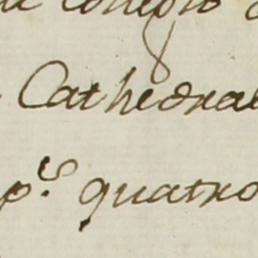 Colegio
Cathedral
p.s quatro